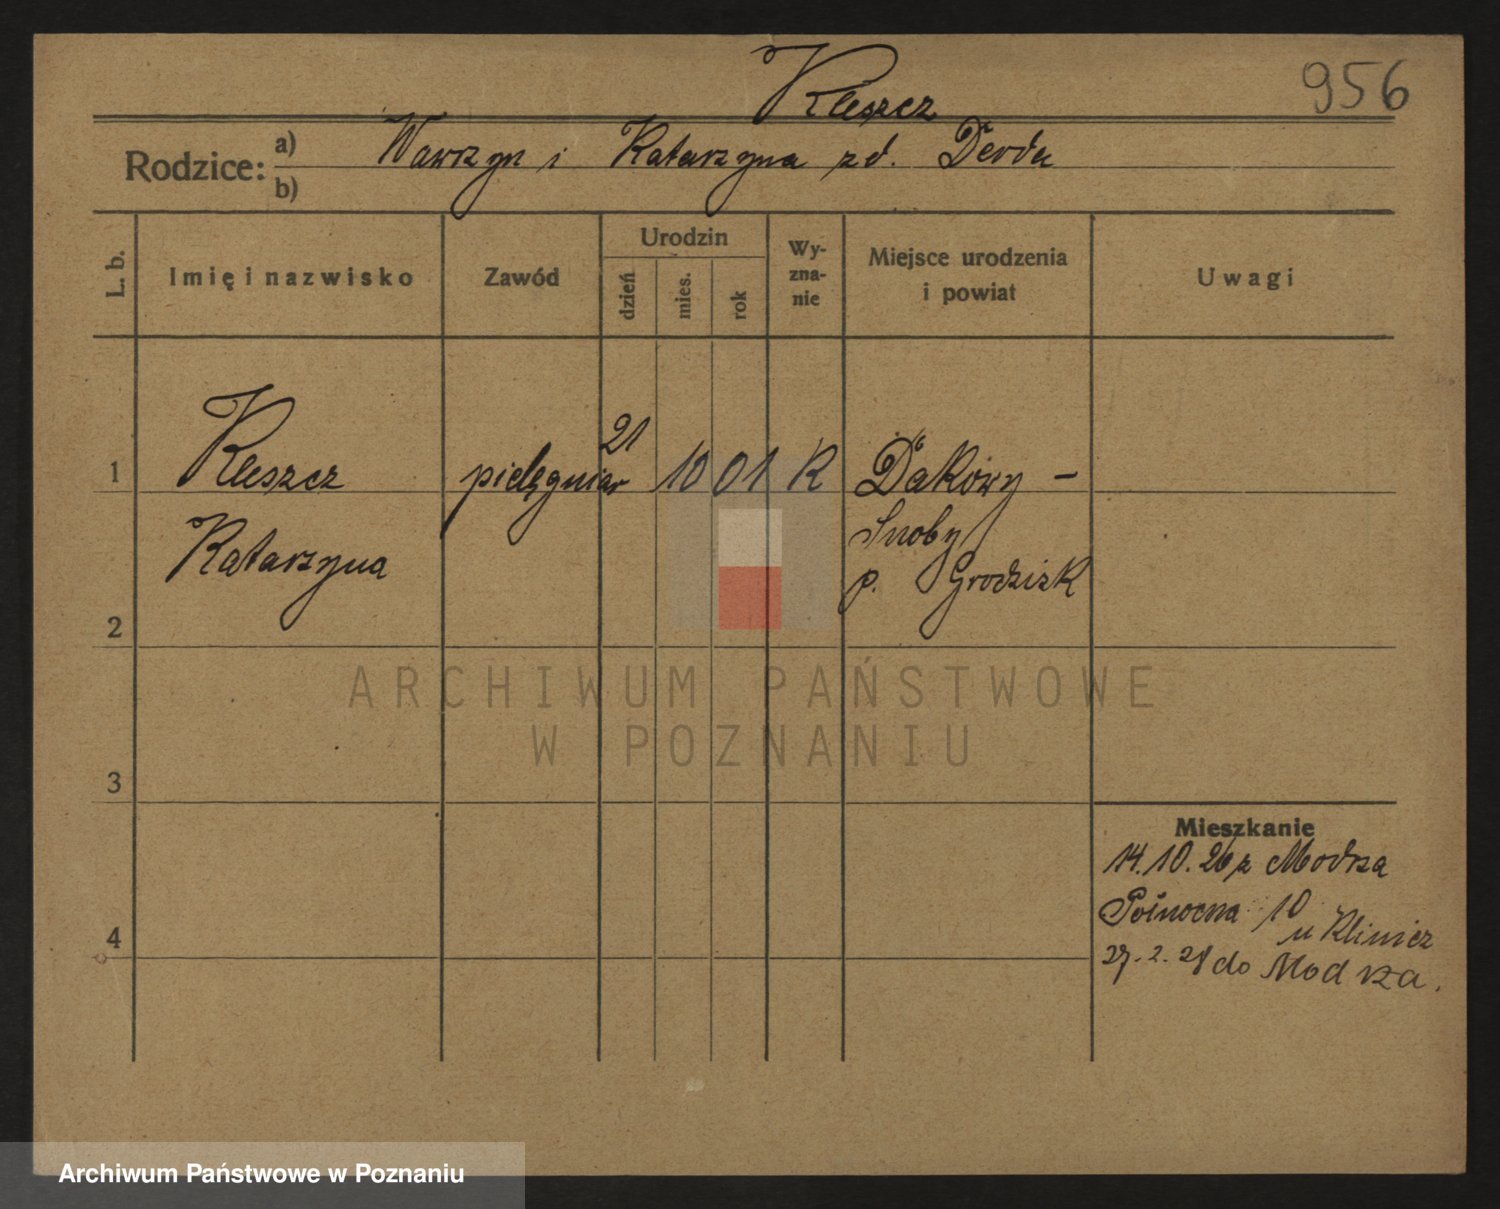 Kleszcz
956
Rodzice: a) Wawrzyn i Katarzyna zd. Derda
b)
L. b.
Imię i nazwisko
Zawód
Urodzin
dzień
mies.
rok
Wy-
zna-
nie
Miejsce urodzenia
i powiat
Uwagi
1 Kleszcz pielęgniar 21 10 01 K Dakowy -
Katarzyna
Snoby
p. Grodzisk
2
ARCHIWUM PAŃSTWOWE
W POZNANIU
3
Mieszkanie
14.10.26 z Modrza
Północna 10
u Klinicz
4
27.2.28 do Modrza.
Archiwum Państwowe w Poznaniu